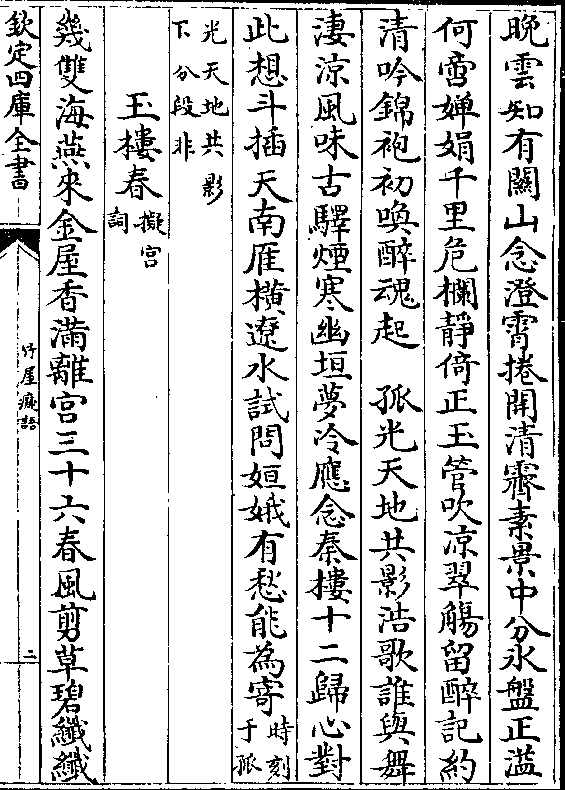 晚雲知有關山念澄霄捲開清霽素景中分冰盤正溢
何啻嬋娟千里危欄靜倚正玉管吹涼翠觴留醉記約
清吟錦袍初喚醉魂起　孤光天地共影浩歌誰與舞
淒涼風味古驛煙寒幽垣夢冷應念秦樓十二歸心對
此想斗插天南雁橫遼水試問姮娥有愁能為寄時刻于孤
光天地共影下分段非
玉樓春擬宮詞
幾雙海燕來金屋香滿離宮三十六春風剪草碧纖纖
欽定四庫全書
竹屋癡語
二